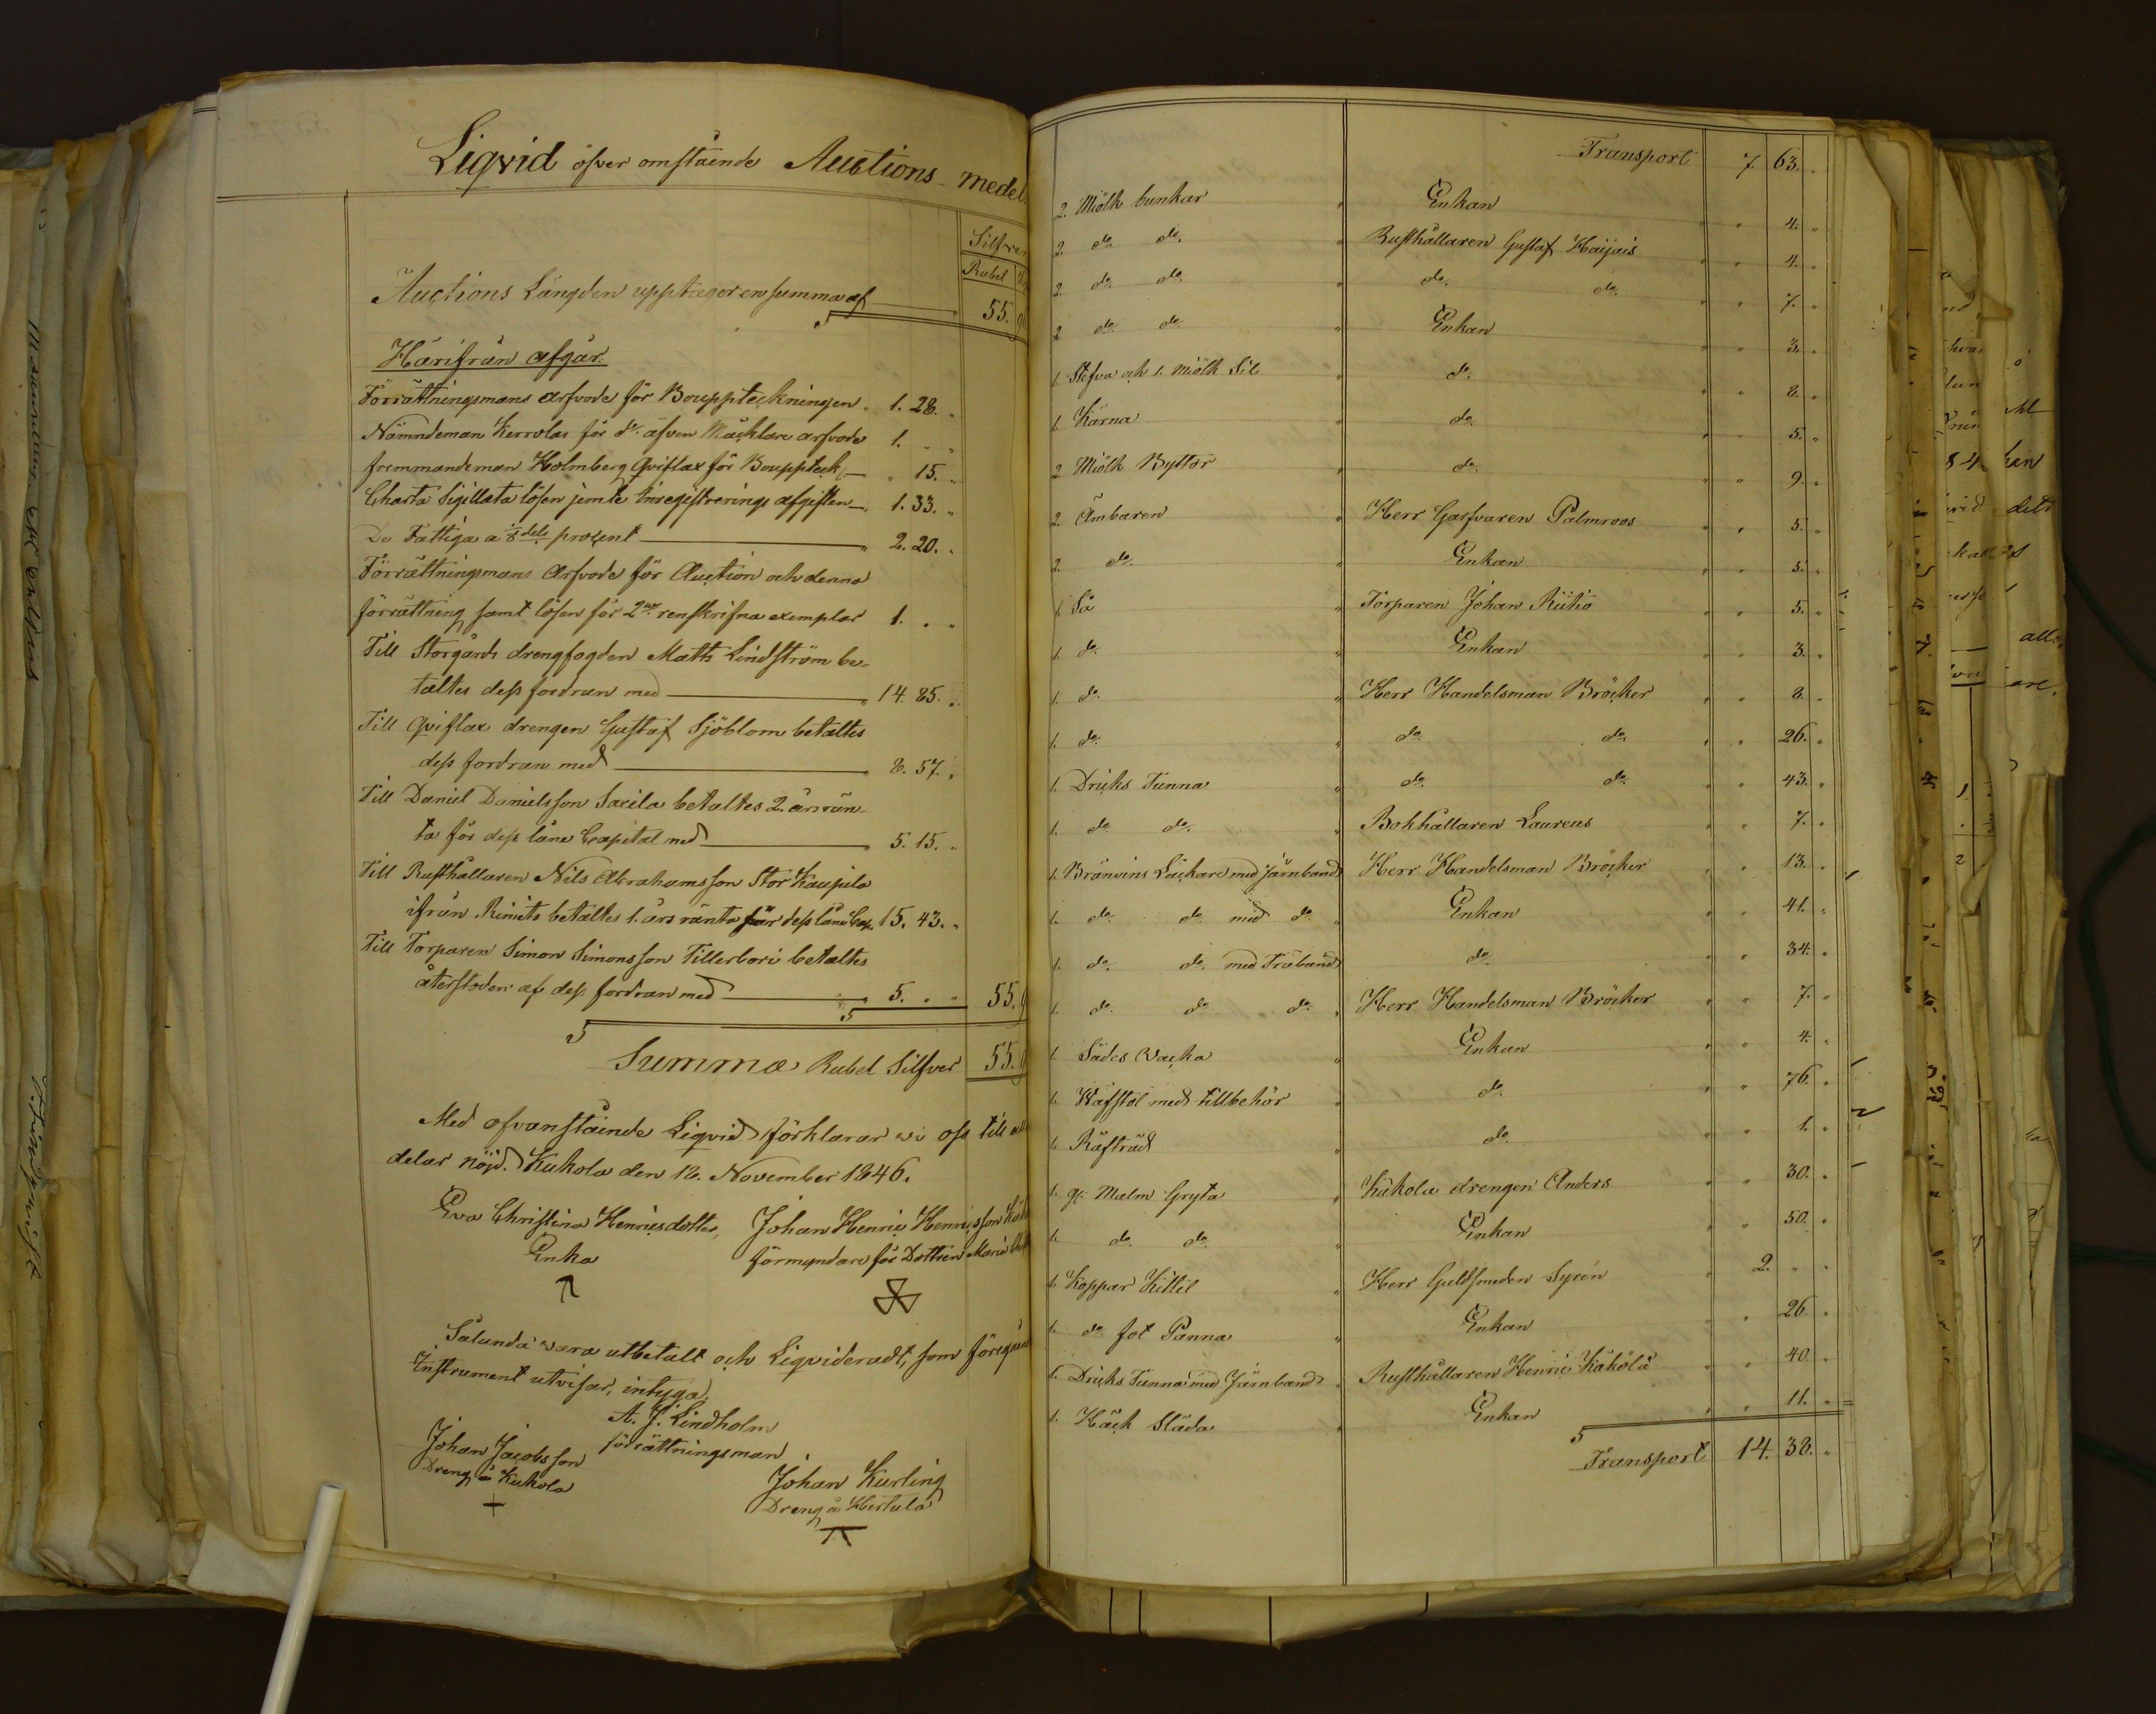 Liqvid öfver omstående Auctions-medel
Silfver
Rubel
Auctions Längden upptager en summa af 55.
Härifrån afgår.
Förrättningsmans arfvode för Bouppteckningen 1. 28.
Nämndeman Kerrolas för do. äfven Mäcklare arfvode 1. " "
fremmandeman Holmberg Qviflax för Boupptech. " 15. "
Charta Sigillata lösen jemte Inregistrerings afgiften 1. 33. "
De Fattiga a 1/8 dels procent 2. 20. "
Förrättningsmans Arfvode för Auction och denna
förrättning samt lösen för 2ne renskrifna exemplar 1. " "
Till Storgårds drengfogden Matts Lindström be-
taltes dess fordran med 14. 85. "
Till Qviflax drengen Gustaf Sjöblom betaltes
dess fordran med 8. 57. "
Till Daniel Danielsson Saxila betaltes 2. års rän-
ta för dess låne Capital med 5. 15. "
Till Rusthållaren Nils Abrahamsson Stor Kaupila
ifrån Rimito betaltes 1. års ränta för dess låne Cap. 15. 43. "
Till Torparen Simon Simonsson Tillerbori betaltes
återstoden af dess fordran med 5. " " 55.
Summa Rubel Silfver 55.
Med ofvanstående Liqvid förklarar wi oss till
delar nöjd. Kukola den 18. November 1846.
Eva Christina Henricsdotter, Johan Henric Henricsson
Enka förmyndare för Dottren Maria
Sålunda wara utbetalt och Liqvideradt, som föregå
Instrument utvisar, intyga.
A. J. Lindholm
förrättningsman
Johan Jacobsson
Dreng å Kukola
Johan Kurling
Dreng å Hertula
Transport 7. 63. "
2. Miölk bunkar " Enkan " 4. "
2. do. do. " Rusthållaren Gustaf Haijais " 4. "
2 do. do. " do. do. " 7. "
2 do. do. " Enkan " 3. "
1. Stefva och 1. Miölk Sil " do. " 8. "
1. Kärna " do. " 5. "
2 Miölk Byttor " do. " 9. "
2. Ämbaren " Herr Garfvaren Palmroos " 5. "
2. do. " Enkan " 5. "
1. Så " Torparen Johan Riihiö " 5. "
1. do. " Enkan " 3. "
1. do. " Herr Handelsman Bröcker " 8. "
1. do. " do. do. " 26. "
1. Dricks Tunna " do. do. " 43. "
1. do. do. " Bokhållaren Laureus " 7. "
1. Bränvins Läckare med järnband Herr Handelsman Bröcker " 13. "
1. do. do. med do. " Enkan " 41. "
1. do. do. med Träband do. " 34. "
1. do. do do. " Herr Handelsman Bröcker " 7. "
1. Sädes Wacka " Enkan " 4. "
1. Wäfstol med tillbehör " do. " 76. "
1. Räfträd " do. " 1. "
1. gl. Malm Gryta " Kukola drengen Anders " 30. "
1. do. do. " Enkan " 50. "
1. Koppar Kittel " Herr Guldsmeden Syrén 2. " "
1. do. fot Panna " Enkan " 26 "
1. Dricks Tunna med Järnband " Rusthållaren Henric Käkölä " 40. "
1. Häck Släda " Enkan " 11. "
Transport 14. 38. "